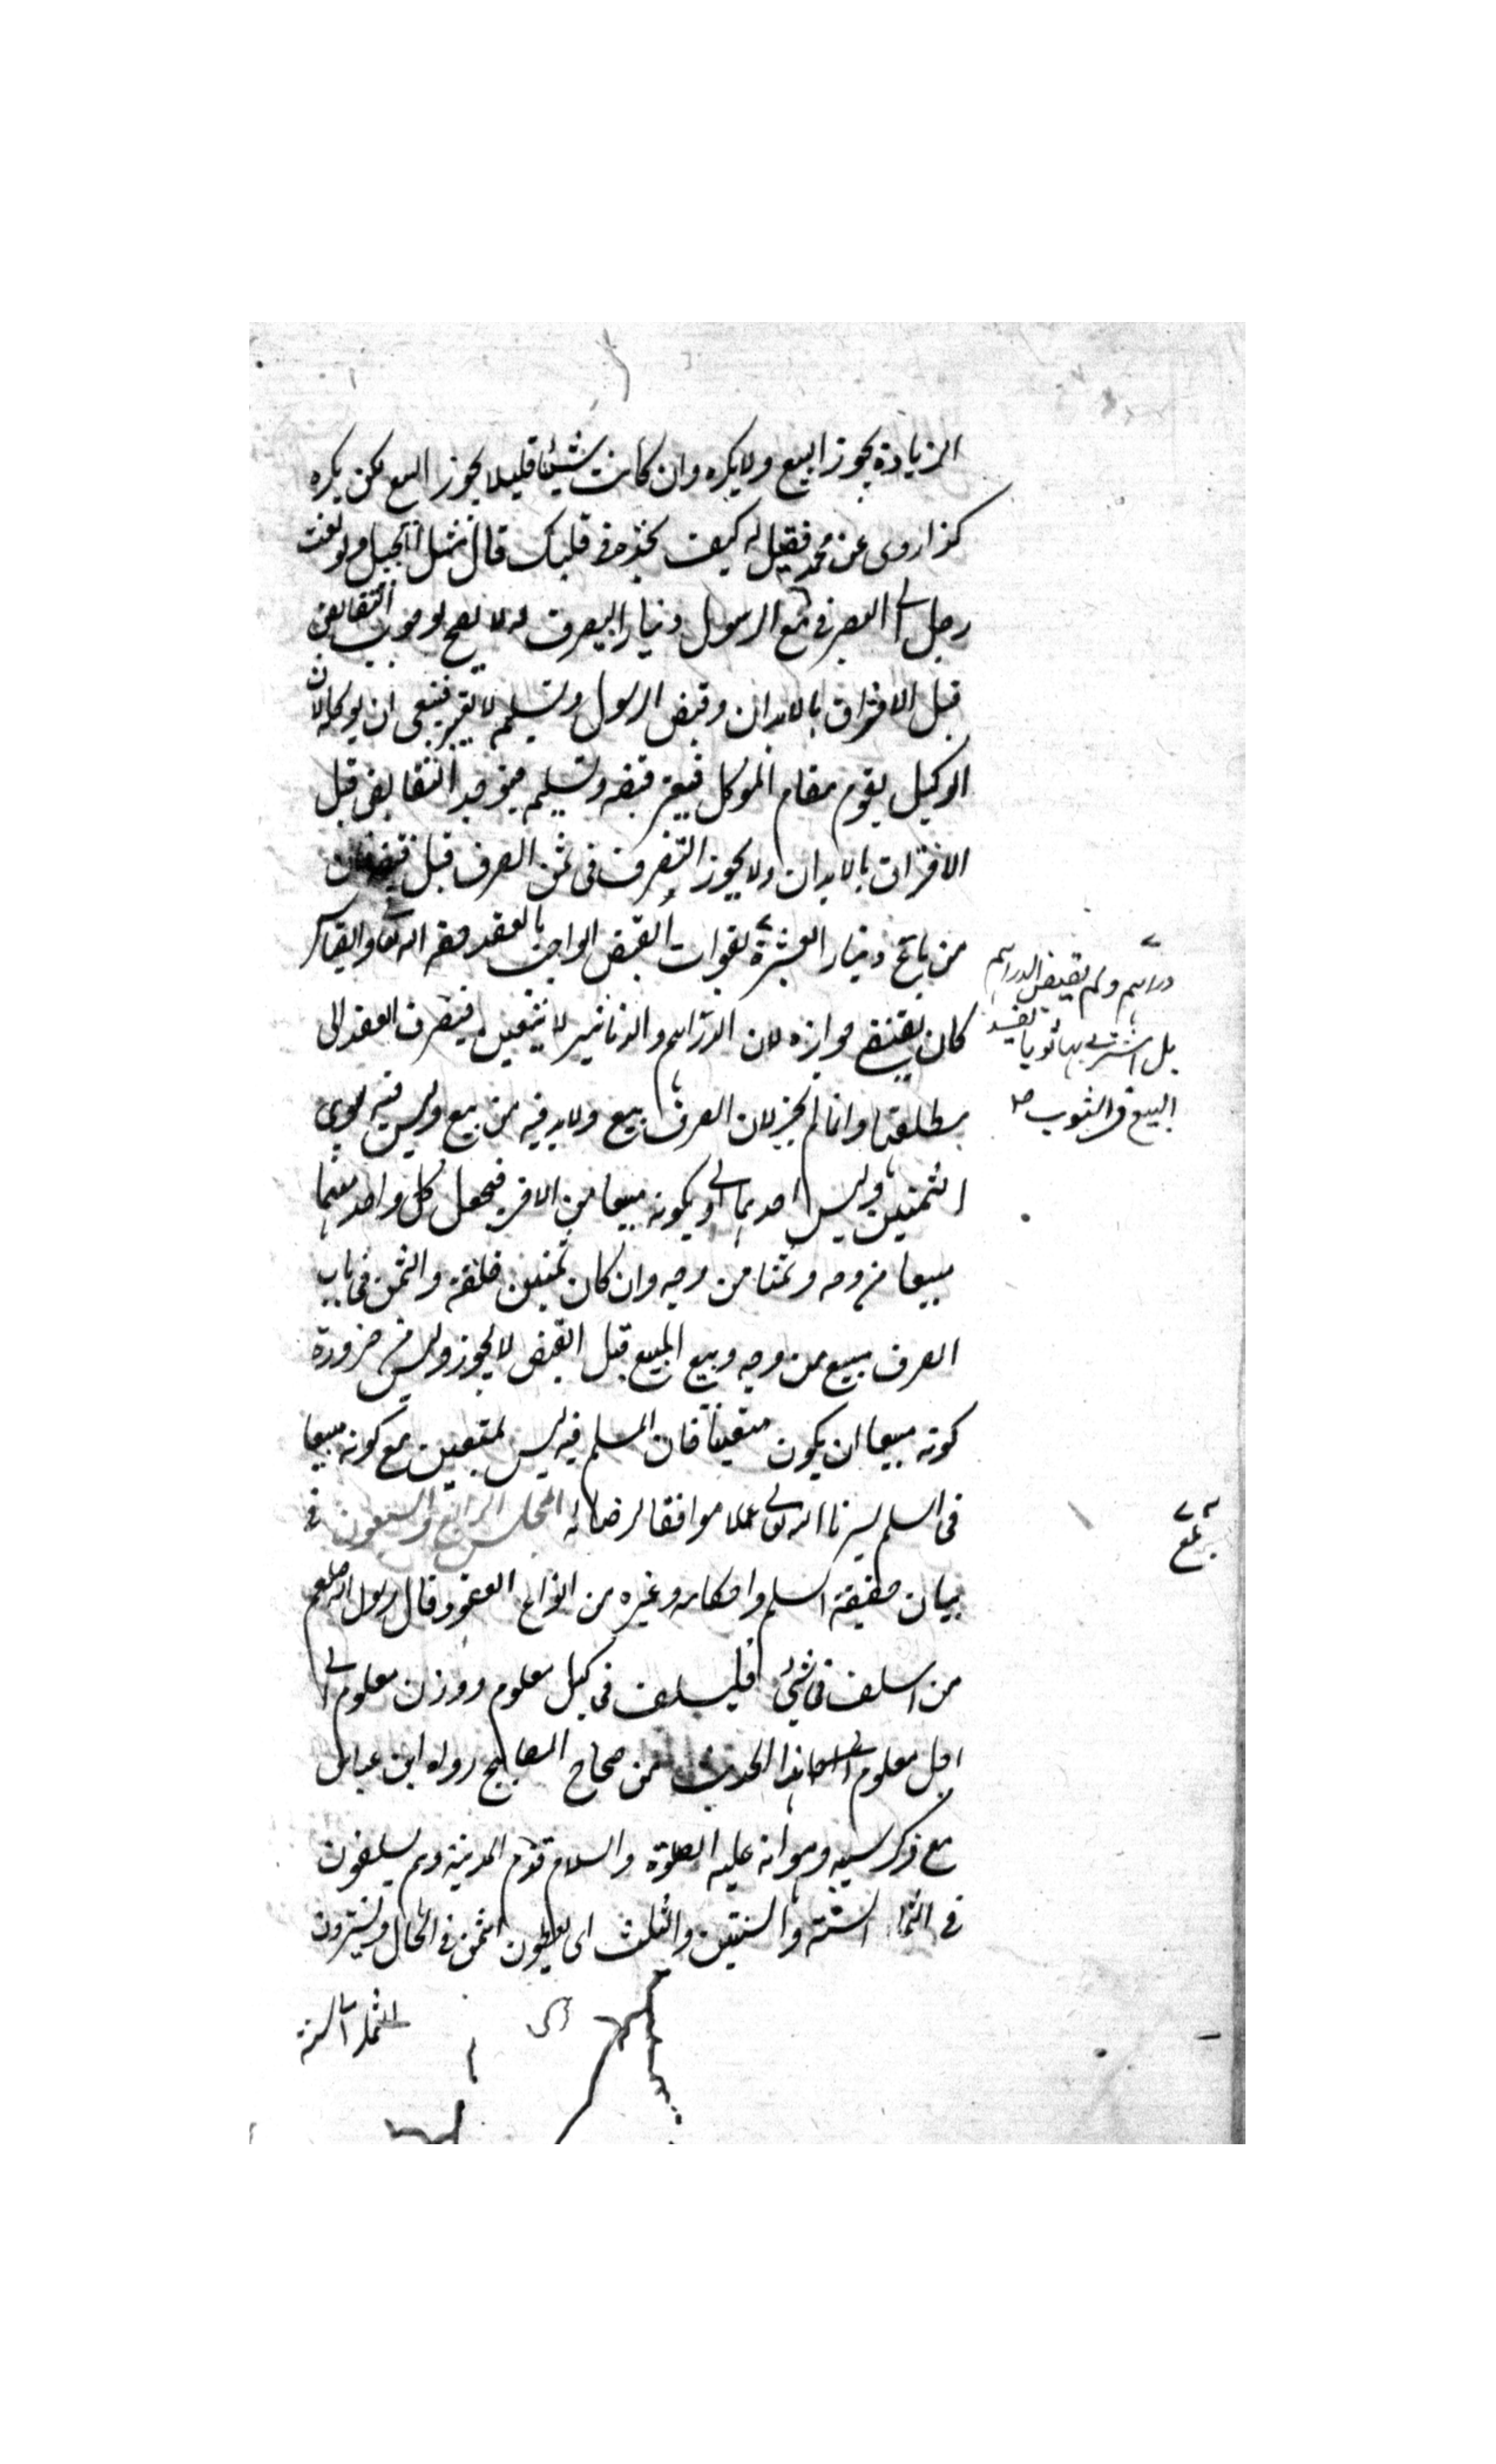 الزيادة يجوز البيع ولا يكره وان كانت شيئا قليلا يجوز البيع لكن يكره
كذا روى عن محمد فقيل له كيف تجده في قلبك قال مثل الجبل ولو بعث
رجل الى الصرفي مع الرسول دينارا ليصرف له لا يصح لوجوب التقابض
قبل الافتراق بالابدان وقبض الرسول وتسليمه لا يعتبر فينبغي ان يوكله لان
الوكيل يقوم مقام الموكل فيعتبر قبضه وتسليمه فيوجد التقابض قبل
الافتراق بالابدان ولا يجوز التصرف في ثمن الصرف قبل قبضه فان
من باع دينارا بعشرة لفوات القبض الواجب بالعقد حقه الله تعالى والقياس
دراهم ولم يقبض الدراهم
بل اشترى بها ثوبا يفسد
البيع في الثوب صح
كان يقتضي جوازه لان الدراهم والدنانير لا يتعين فينصرف العقد الى
مطلقها وانما لم يجز لان الصرف بيع ولا بد فيه من بيع وليس فيه سوى
الثمنين وليس احدهما اولى بكونه مبيعا من الاخر فيجعل كل واحد منهما
مبيعا من وجه وثمنا من وجه وان كان ثمنين خلقة والثمن في باب
الصرف مبيع من وجه وبيع المبيع قبل القبض لا يجوز وليس من ضرورة
كونه مبيعا ان يكون متعينا فان المسلم فيه ليس بمتعين مع كونه مبيعا
في السلم يسرنا الله تعالى عملا موافقا لرضائه المجلس الرابع والسبعون في
بيان حقيقة السلم واحكامه وغيره من انواع العقود قال رسول الله صلعم
من اسلف في شيء فليسلف في كيل معلوم ووزن معلوم الى
اجل معلوم هذا الحديث من صحاح المصابيح رواه ابن عباس
مع ذكر سببه وهو انه عليه الصلوة والسلام قدم المدينة وهم يسلفون
في الثمار السنة والسنتين والثلث اى يعطون الثمن في الحال ويشترون
الثمار الى السنة